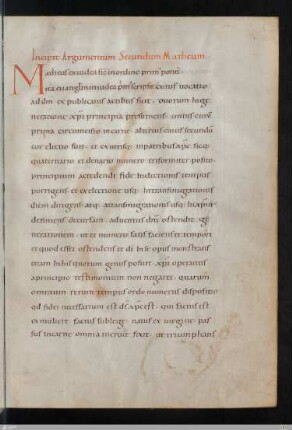 Incipit Argumentum Secundum Matheum
Matheus ex iudea sicut in ordine primus ponitur
ita euangelium in iudea primus scripsit cuius uocatio
ad dm ex publicanis actibus fuit duorum in ge
neratione xpi principia presumens unius cuius
prima circumcisio in carne alterius cuius secundu
cor electio fuit et ex utrisq; in patribus xps sicq;
quaternario et denario numero triformiter posito
principium a credendi fide in electionis tempus
porrigens et ex electione usq; in transmigrationis
diem dirigens atq; a transmigrationis usq; in xpm
definiens decursam aduentus dni ostendit ge
nerationem ut et numero satisfaciens et tempori
et se quod esset ostendens et di in se opus monstrans
etiam in his quorum genus posuit xpi operantis
a principio testimonium non negaret quarum
omnium rerum tempus ordo numerus dispositio
qd fidei necessarium est ds xps est qui factus est
ex muliere factus sub lege natus ex uirgine pas
sus in carne omnia in cruce fixit ut triumphans